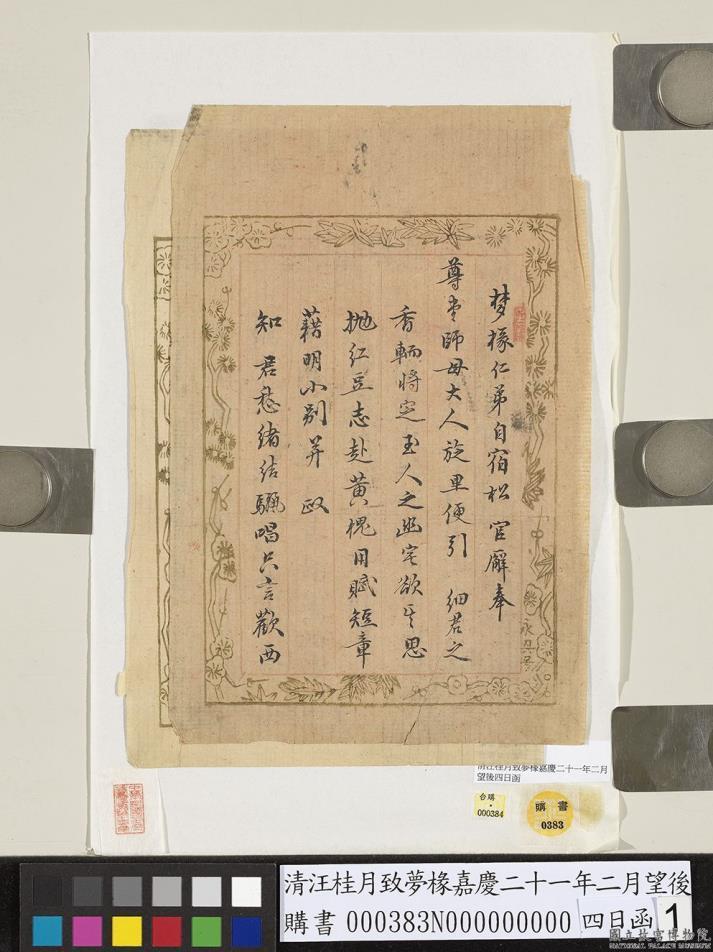 梦椽仁弟自宿松官廨奉
尊堂師母大人旋里便引 細君之
香輀將定玉人之幽宅欲
抛紅豆志赴黃槐用賦短章
藉明小别并政
知君愁緒結驪唱只言歡西
清汪桂月致夢椽嘉慶二十一年二月
望後四日函
台購
·
000384
購書
0383
清汪桂月致夢椽嘉慶二十一年二月望後
購書 000383N000000000 四日函 1
國立故宮博物院
NATIONAL PALACE MUSEUM